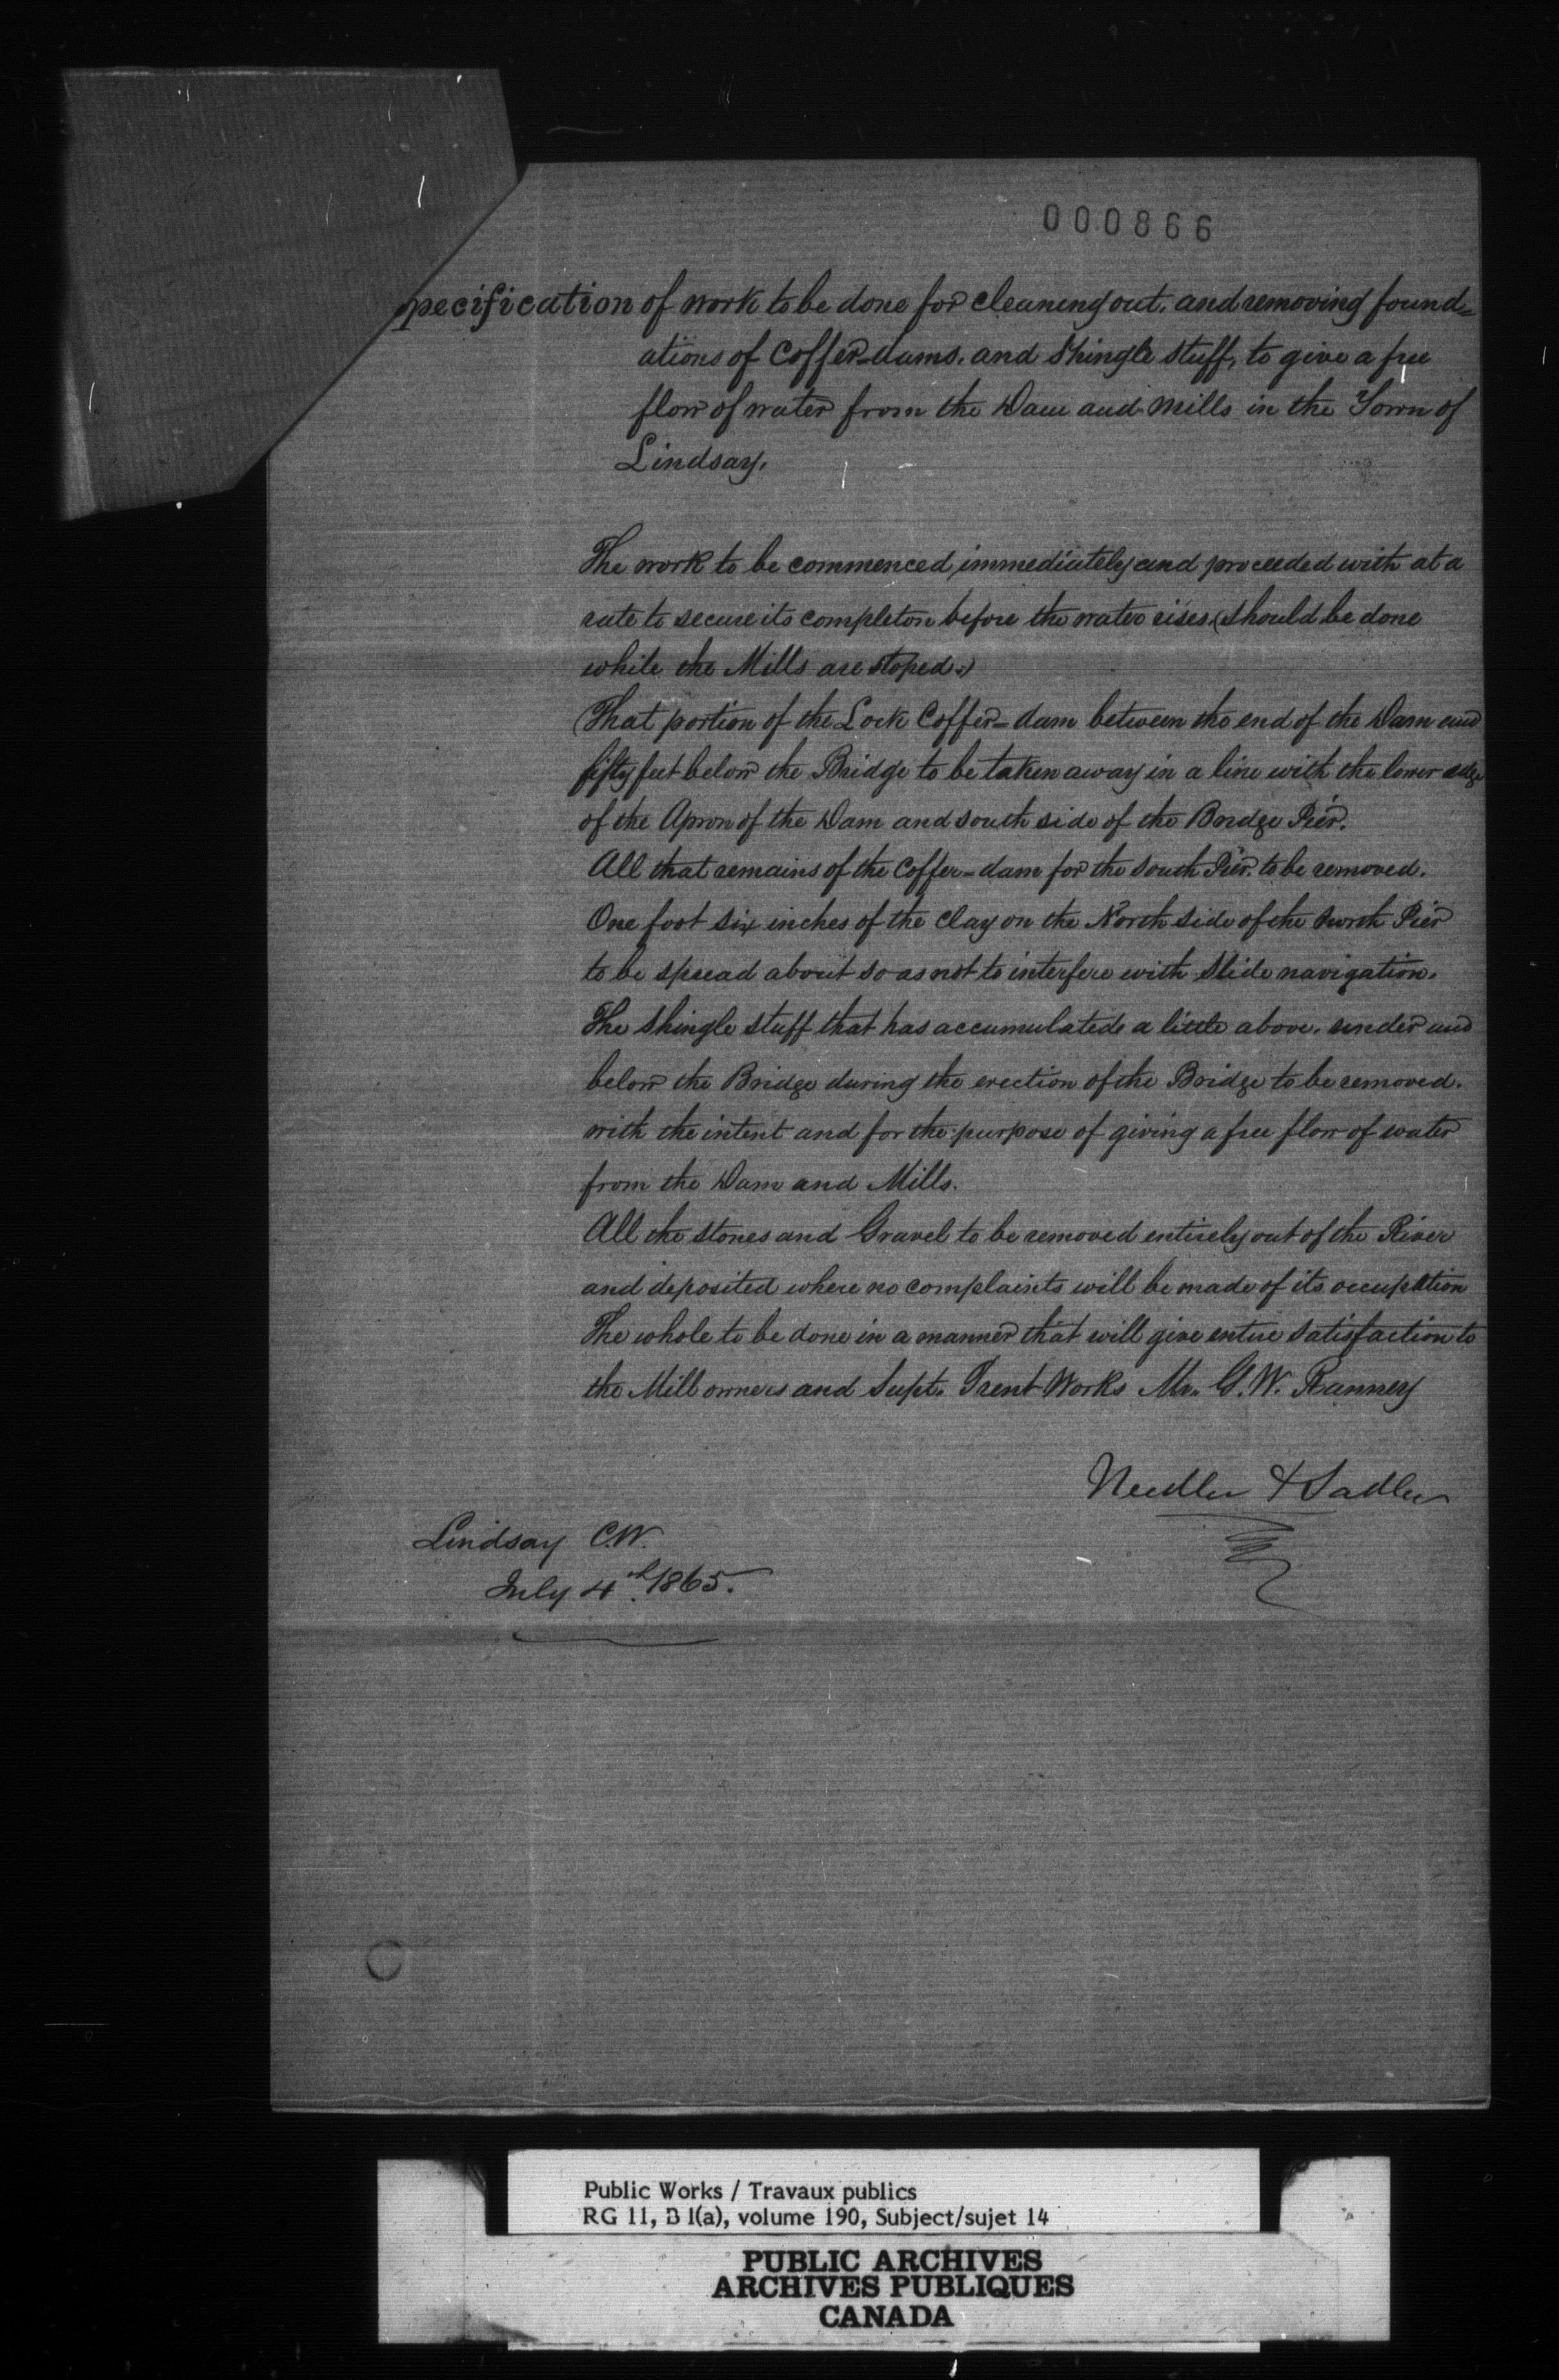 000866
pecification of work to be done for cleaning out, and removing found=
ations of Coffer-dams, and Shingle stuff, to give a free
flow of water from the Dam and Mills in the Town of
Lindsay.
The work to be commenced immediately and proceeded with at a
rate to secure its completon before the water rises. (should be done
while the Mills are stoped.)
That portion of the Lock Coffer-dam between the end of the Dam and
fifty feet below the Bridge to be taken away in a line with the lower edge
of the Apron of the Dam and south side of the Bridge Pier.
All that remains of the Coffer-dam for the South Pier, to be removed.
One foot six inches of the Clay on the North side of the North Pier
to be spread about so as not to interfere with Slide navigation.
The Shingle stuff that has accumulated a little above, under and
below the Bridge during the erection of the Bridge to be removed.
with the intent and for the purpose of giving a free flow of water
from the Dam and Mills.
All the stones and Gravel to be removed entirely out of the River
and deposited where no complaints will be made of its occupation
The whole to be done in a manner that will give entire satisfaction to
the Mill owners and Supt. Trent Works Mr. G. W. Ranney
Needler & Sadler
Lindsay C.W.
July 4th 1865.
Public Works / Travaux publics
RG 11, B 1(a), volume 190, Subject/sujet 14
PUBLIC ARCHIVES
ARCHIVES PUBLIQUES
CANADA